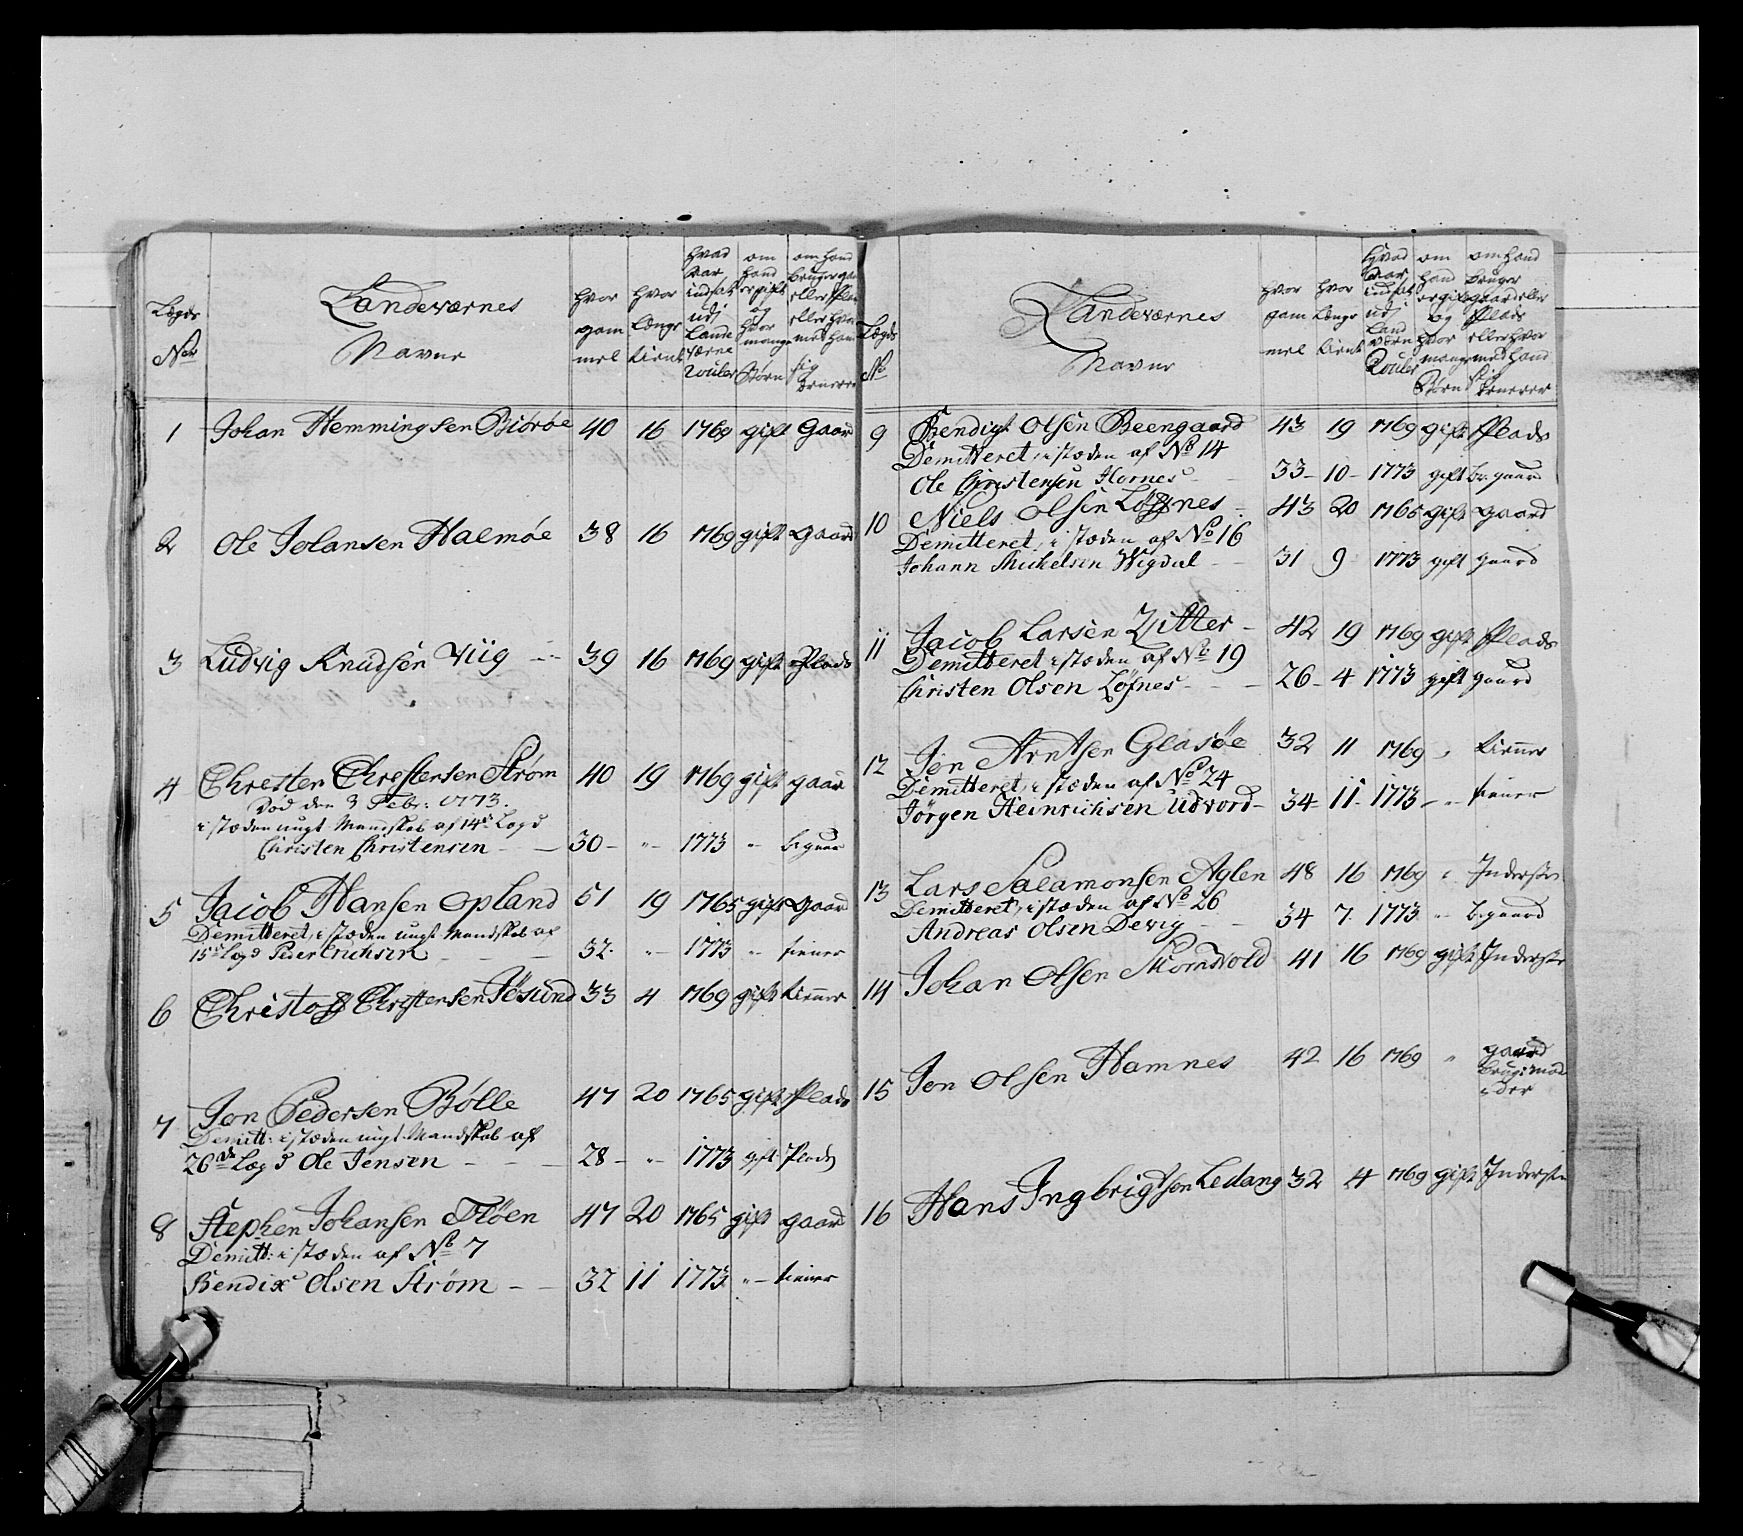 Lægds No
Landeværnes Navne
hvor gam mel
hvor længe tient
hvad aar indsat udj Lande værne Rouler
om hand er gift og hvor mange Børn
om hand bruger gaard eller Plads eller hvor med hand sig ernerer
1 Johan Hemmingsen Biørøe 40 16 1769 gift Gaard
2 Ole Johansen Halmøe 38 16 1769 gift gaard
3 Ludvig Knudsen Viig 39 16 1769 gift Plads
4 Christen Christensen Strøm 40 19 1769 gift gaard
Død den 3 Febr: 1773.
i stæden ungt Mandskab af 14de Lægd
Christen Christensen - - 30 - " - 1773 " br: gaar
5 Jacob Hansen Opland 51 19 1765 gift gaard
Demitteret, i stæden ungt Mandskab af
15de Lægd Peder Erichsen - - - 32. " - 1773 " tiener
6 Christoff Christensen Jøsund 33 4 1769 gift tienner
7 Jon Pedersen Bølle 47 20 1765 gift Plads
Demitt: i stæden ungt Mandskab af
26de Lægd Ole Jensen - - - 28 - " - 1773 gift Plads
8 Stephen Johansen Fløen 47 20 1765 gift gaard
Demitt: i stæden af No 7
Bendix Olsen Strøm - - 32 11 1773 " - tiener
Lægds No
Landeværnes Navne
hvor gam mel
hvor længe tient
hvad aar indsat udj Land værn Rouler
om hand er gift og hvor mange Børn
om hand bruger gaard eller Plads eller hvor med hand sig ernerer
9 Bendigt Olsen Beengaard 43 19 1769 gift Plads
Demitteret, i stæden af No 14
Ole Christensen Hornes - - 33 - 10 - 1773 gift br: gaard
10 Niels Olsen Løffnes 43 20 1765 gift gaard
Demitteret, i stæden af No 16
Johann Michelsen Wigdal - - 31 9 1773 gift gaard
11 Jacob Larsen Zitter - 42 19 1769 gift Plads
Demitteret i stæden af No 19
Christen Olsen Løfnes - - - 26 - 4 1773 gift gaard
12 Jon Arntsen Glasøe 32 11 1769 " tienner
Demitteret, i stæden af No 24
Jørgen Heinrichsen Udvord - 34 - 11 - 1773 - " tiener
13 Lars Salamonsen Aglen 48 16 1769 " Inderste
Demitteret, i stæden af No 26
Andreas Olsen Devig - - 34 7 1773 " br: gaard
14 Johan Olsen Skomsvold 41 16 1769 gift Inderste
15 Jon Olsen Hamnes 42 16 1769 " gaard
16 Hans Ingbrigtsen Ledang 32 4 1769 gift Inderste